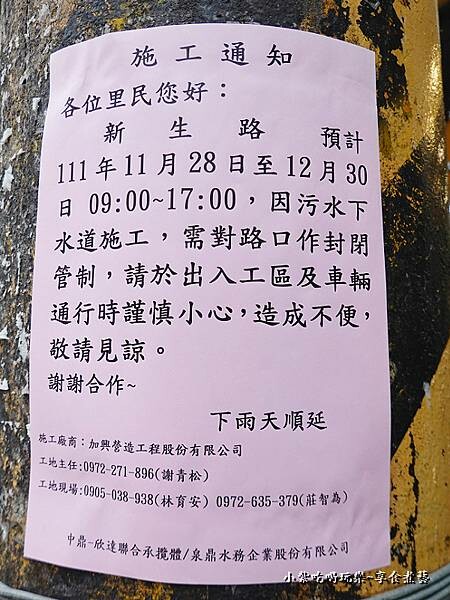 施工通知
各位里民您好：
新生路 預計
111年11月28日至12月30
日 09:00~17:00，因污水下
水道施工，需對路口作封閉
管制，請於出入工區及車輛
通行時謹慎小心，造成不便，
敬請見諒。
謝謝合作~
下雨天順延
施工廠商：加興營造工程股份有限公司
工地主任:0972-271-896(謝青松)
工地現場:0905-038-938(林育安) 0972-635-379(莊智為)
中鼎-欣達聯合承攬體/泉鼎水務企業股份有限公司
小紫吃喝玩樂-享食煮藝